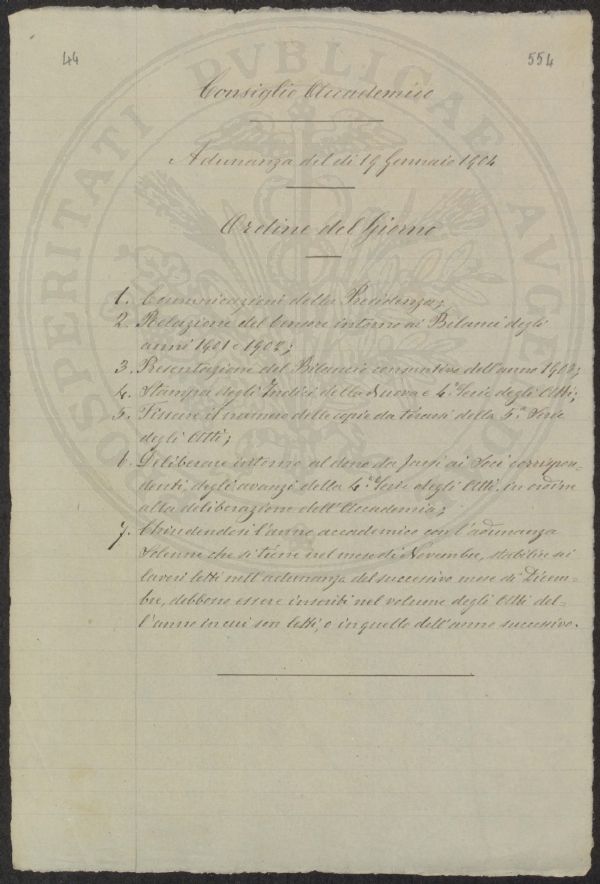 44
554
Consiglio Accademico
Adunanza del dì 19 Gennaio 1904
Ordine del Giorno
1. Comunicazioni della Presidenza;
2. Relazione del Censore intorno ai Bilanci degli
anni 1901 e 1902;
3. Presentazione del Bilancio consuntivo dell'anno 1903;
4. Stampa degli Indici della Nuova e 4ª Serie degli Atti;
5. Fissare il numero delle copie da tirarsi della 5ª Serie
degli Atti;
6. Deliberare intorno al dono da farsi ai Soci corrispon=
denti, degli avanzi della 4ª Serie degli Atti, in ordine
alla deliberazione dell'Accademia;
7. Chiudendosi l'anno accademico con l'adunanza
Solenne che si tiene nel mese di Novembre, stabilire se i
lavori letti nell'adunanza del successivo mese di Dicem=
bre, debbono essere inseriti nel volume degli Atti del=
l'anno in cui son letti, o in quello dell'anno successivo.
PROSPERITATI PVBLICAE AVGENDAE